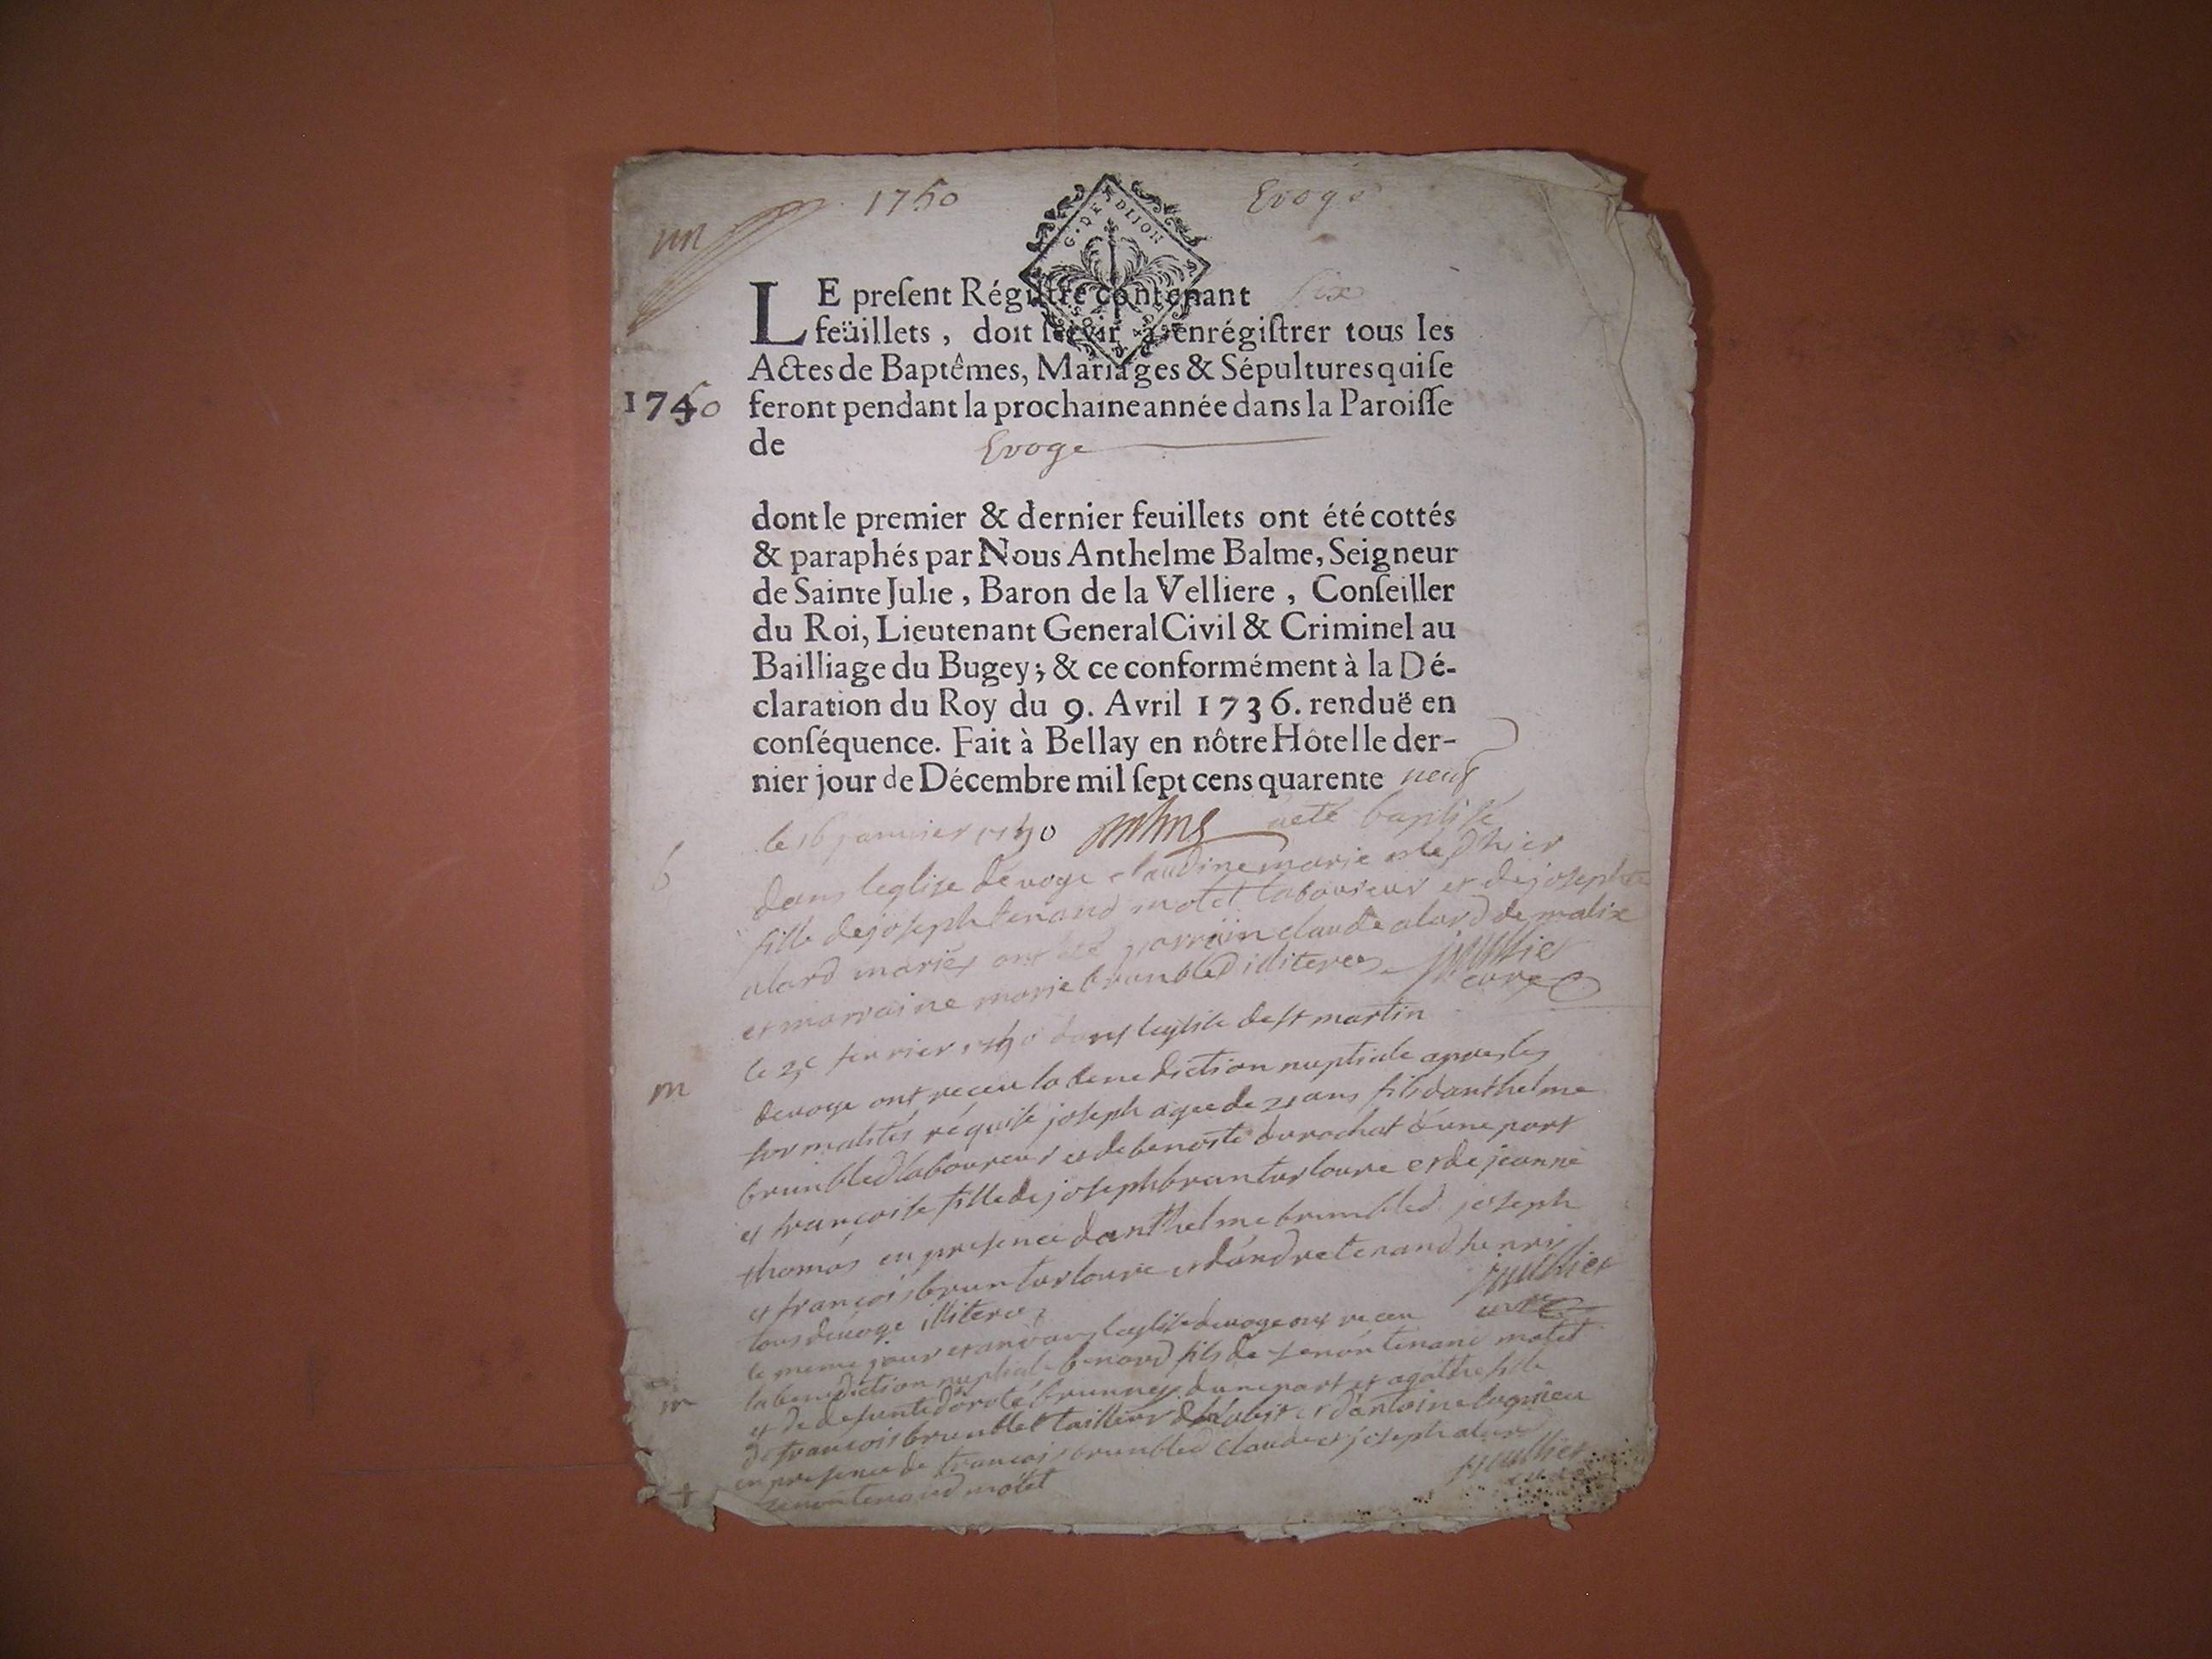 un
1750
Evoge
G. DE DIJON
LE preſent Régiſtre contenant six
feüillets, doit ſervir à enrégiſtrer tous les
Actes de Baptêmes, Mariages & Sépultures qui ſe
1750 feront pendant la prochaine année dans la Paroiſſe
de Evoge
dont le premier & dernier feuillets ont été cottés
& paraphés par Nous Anthelme Balme, Seigneur
de Sainte Julie, Baron de la Velliere, Conſeiller
du Roi, Lieutenant General Civil & Criminel au
Bailliage du Bugey; & ce conformément à la Dé-
claration du Roy du 9. Avril 1736. renduë en
conſéquence. Fait à Bellay en nôtre Hôtel le der-
nier jour de Décembre mil ſept cens quarente neuf
le 16 janvier 1750 a eté baptisé
b dans leglise devoge claudine marie née dhier
fille de joseph tenand motet laboureur et de josephte
alard mariés ont été parrain claude alard de malix
et marraine marie brunbled illiteres
curé
le fevrier 1750 dans leglise de st martin
m devoge ont receu la benediction nuptiale apres les
formalités réquise joseph agee de ans fils danthelme
brunbled laboureur et de benoite durochat d'une part
et francoise fille de joseph brun turloure et de jeanne
thomas en presence danthelme brunbled joseph
et francois brun turloure et dandre tenand henri
tous devoge illiteres
curé
le meme jour et an dans leglise devoge ont receu
la benediction nuptiale benard fils de tenand motet
m et de defunte dorote brunney dune part et agathe fille
de francois brunbled tailleur dhabit et dantoine lagnieu
en presence de francois brunbled claude et joseph alard
tenand motet